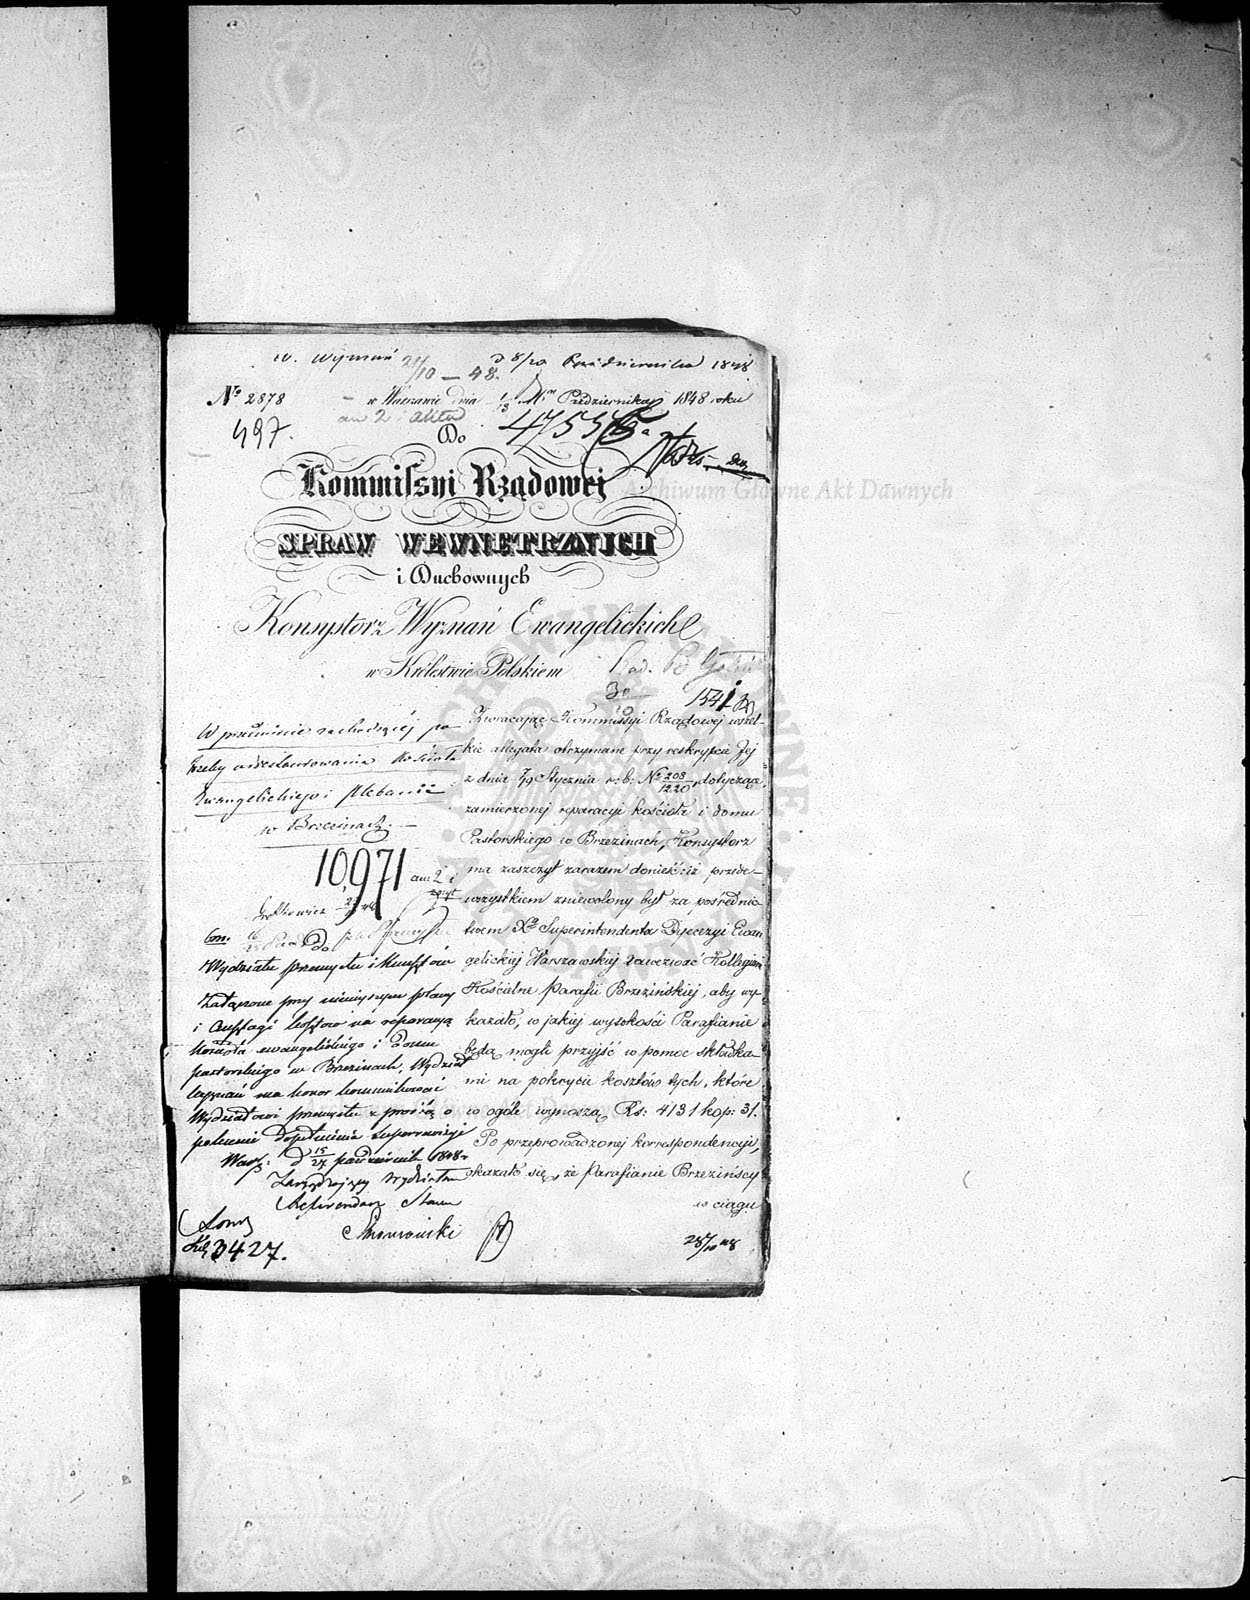 w. Wyznań 21/10 — 48. d 8/20 Października 1848
№ 2878 — w Warszawie dnia 1/13 Października 1848 roku
497. an 2 akta
Do
Archiwum Główne Akt Dawnych
Kommissyi Rządowej
SPRAW WEWNĘTRZNYCH
i Duchownych
Konsystorz Wyznań Ewangelickich
w Królestwie Polskiem
W przedmiocie zachodzącéj po-
trzeby odrestaurowania Kościoła
Ewangelickiego i Plebanii
w Brzezinach.
10,971
Wydziału przemysłu i Kunsztów
Załączone przy niniejszem plany
i Anszlagi kosztów na reparacyą
kościoła ewangelickiego i domu
pastorskiego w Brzezinach, Wydział
wyznań ma honor kommunikować
Wydziałowi przemysłu z prośbą o
polecenie dopełnienia superrewizyi
Warsz: d 15/27 październik 1848 r
Zarządzający Wydziałem
Referendarz Stanu
3427.
Zwracając Kommissyi Rządowej wszel-
kie allegata otrzymane przy reskrypcie Jej
z dnia 7/19 Stycznia r: b: № 208/1220, dotyczące
zamierzonej reparacyi kościoła i domu
Pastorskiego w Brzezinach, Konsystorz
ma zaszczyt zarazem donieść: iż przede-
wszystkiem zniewolony był za pośrednic-
twem Xa Superintendenta Dyecezyi Ewan
gelickiej Warszawskiej zawezwać Kollegium
Kościelne Parafii Brzezińskiej, aby wy-
kazało, w jakiej wysokości Parafianie
będą mogli przyjść w pomoc składka-
mi na pokrycie kosztów tych, które
w ogóle wynoszą Rs: 4131 kop: 31.
Po przeprowadzonej korrespondencyi,
okazało się, że Parafianie Brzezińscy
w ciągu
28/10 48